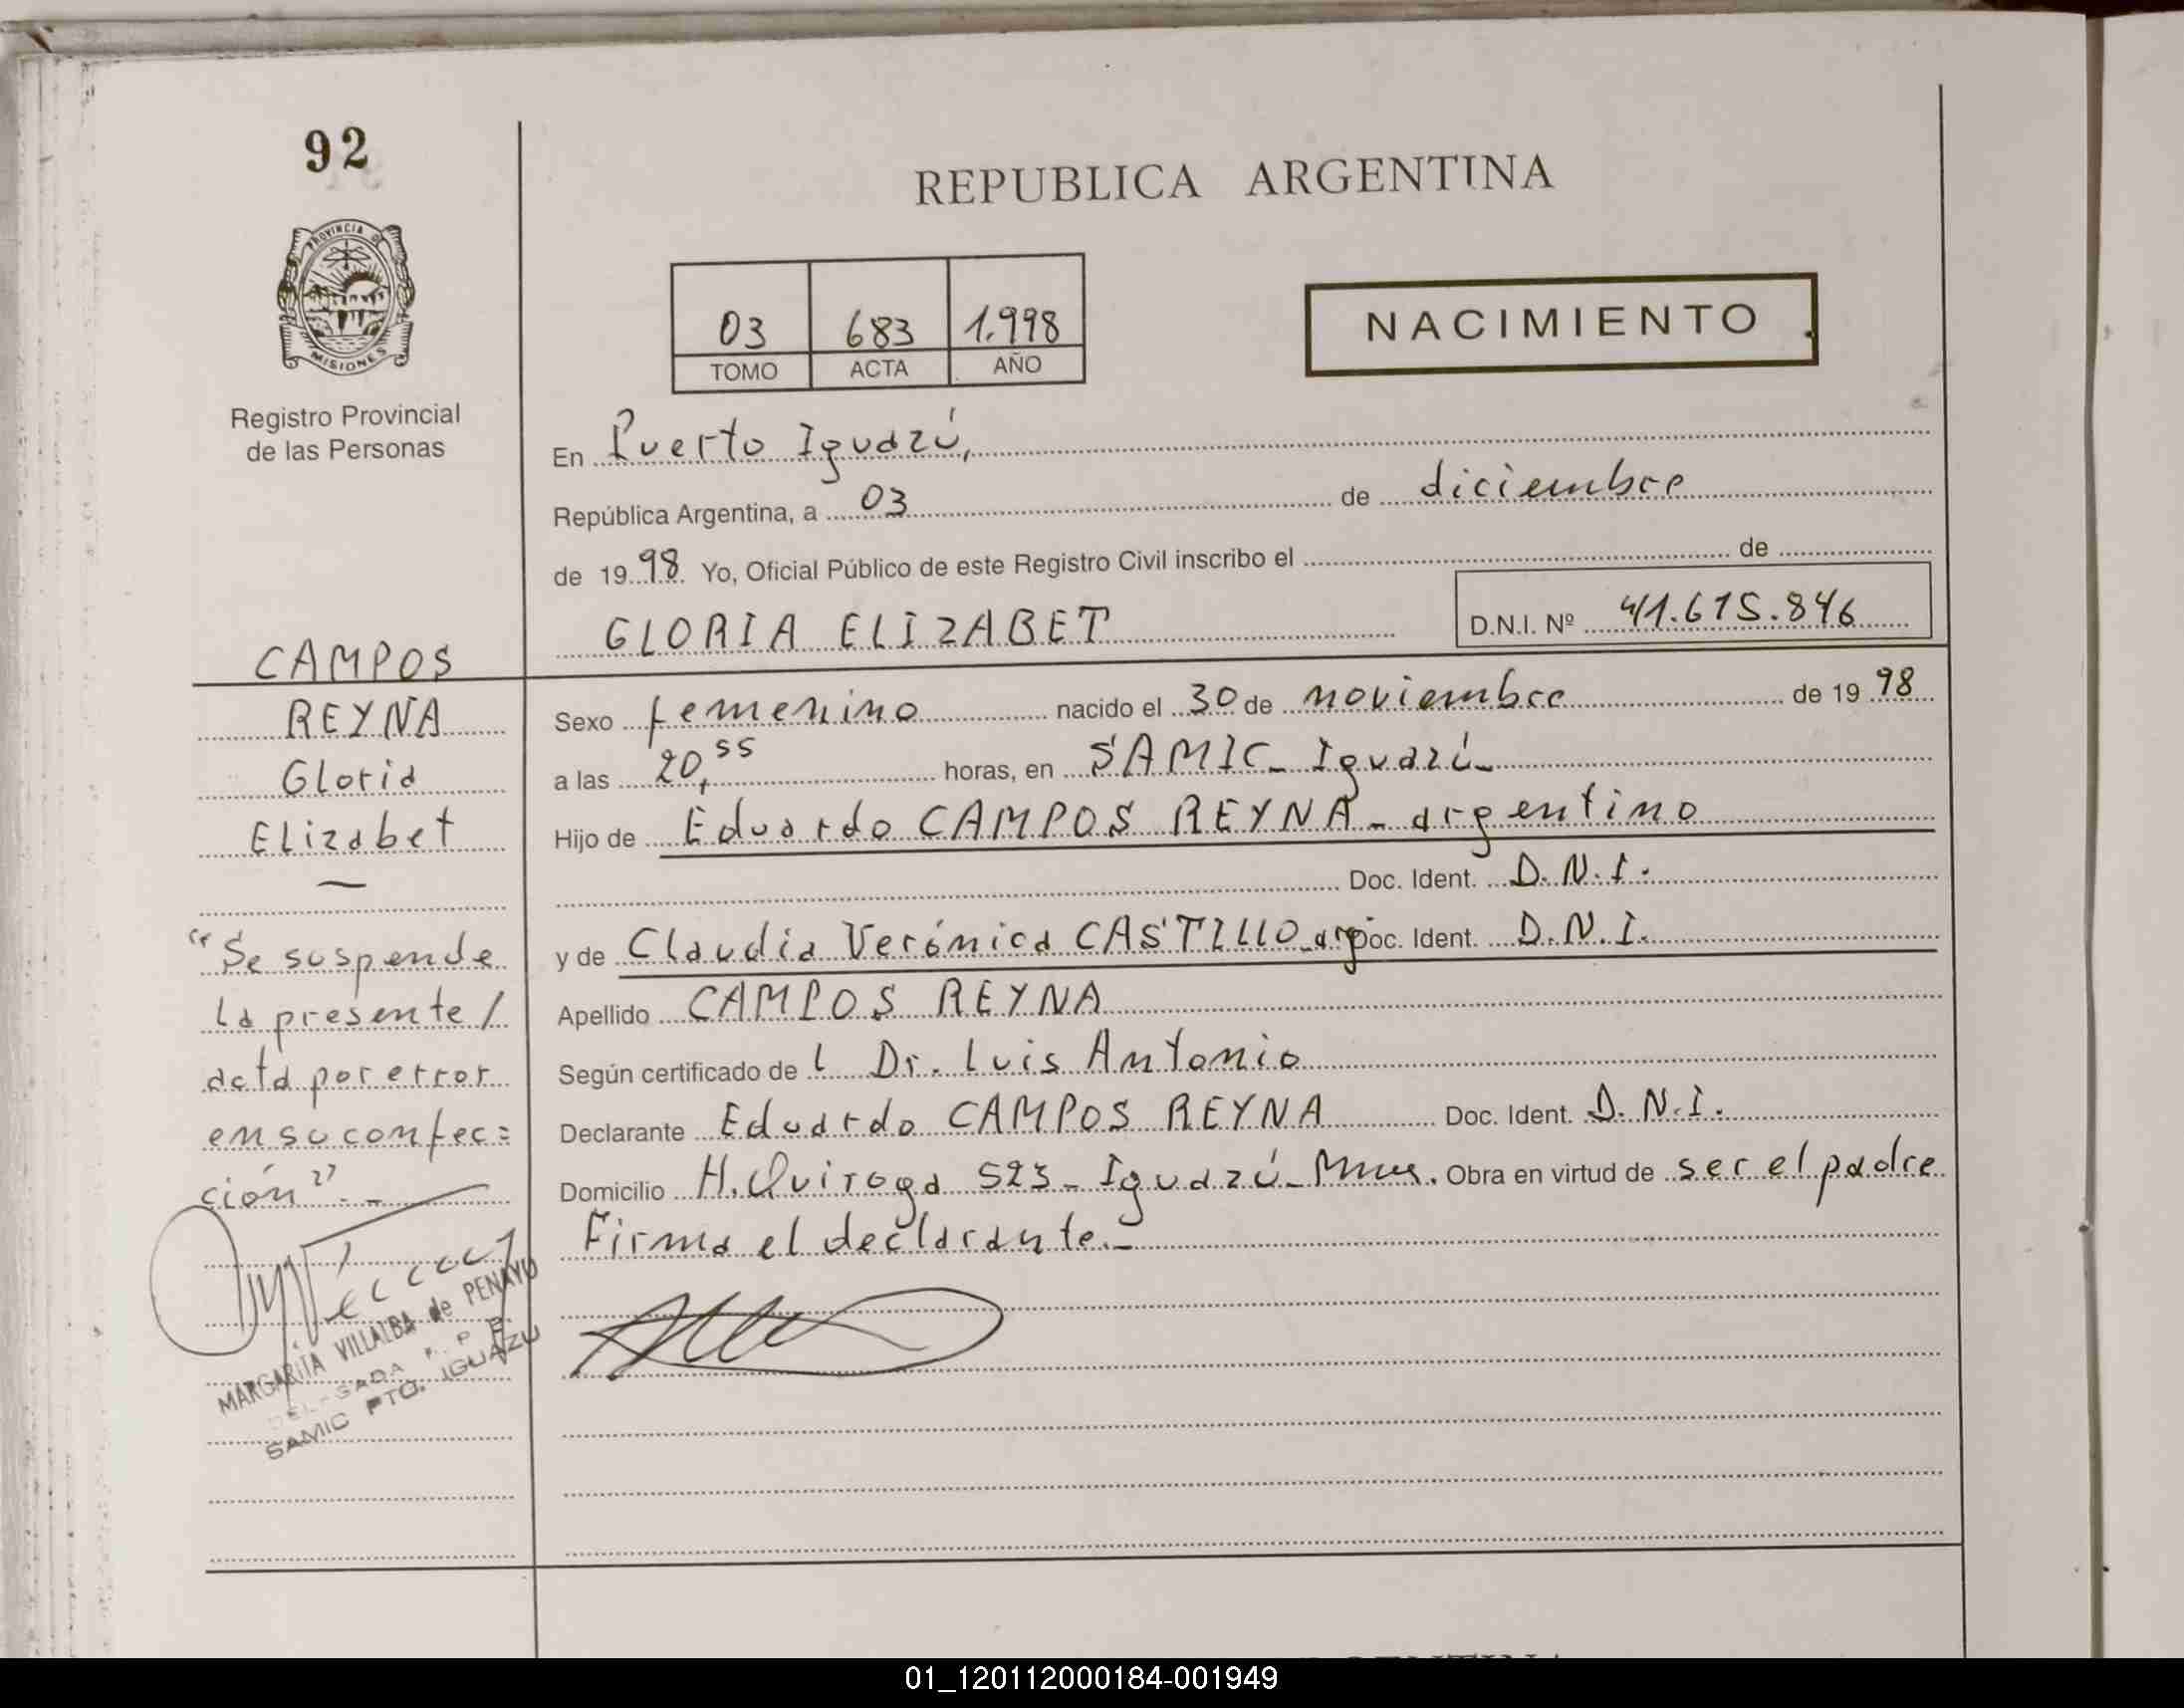 92
PROVINCIA D
MISIONES
Registro Provincial
de las Personas
CAMPOS
REYNA
Gloria
Elizabet
"Se suspende
la presente /
acta por error
en su confec=
ción".-
MARGARITA VILLALBA de PENAYO
SAMIC PTO. IGUAZU
REPUBLICA ARGENTINA
03 683 1.998
TOMO ACTA AÑO
NACIMIENTO
En Puerto Iguazú,
República Argentina, a 03 de diciembre
de 1998 Yo, Oficial Público de este Registro Civil inscribo el de
GLORIA ELIZABET D.N.I. Nº 41.615.846
Sexo femenino nacido el 30 de noviembre de 1998
a las 20,55 horas, en SAMIC- Iguazú-
Hijo de Eduardo CAMPOS REYNA- argentino
Doc. Ident. D.N.I.
y de Claudia Verónica CASTILLO-arg Doc. Ident. D.N.I.
Apellido CAMPOS REYNA
Según certificado del Dr. Luis Antonio
Declarante Eduardo CAMPOS REYNA Doc. Ident. D.N.I.
Domicilio H. Quiroga 523- Iguazú- Obra en virtud de ser el padre
Firma el declarante.-
01_120112000184-001949